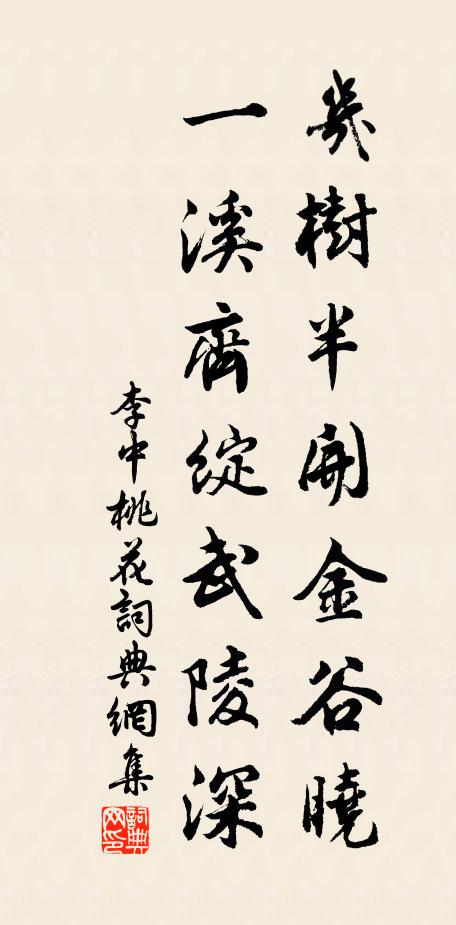 幾樹半開金谷曉
一溪齊綻武陵深
李中桃花詞典網集
詞典網印